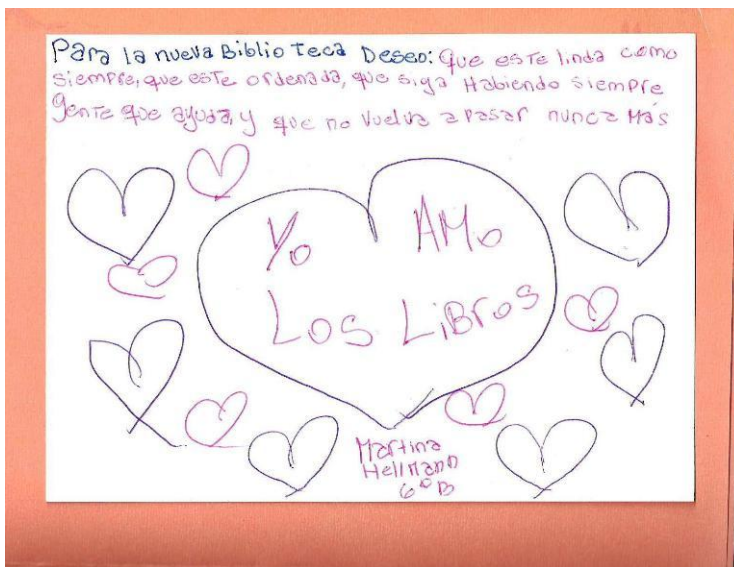 Para la nueva Biblio Teca Deseo: Que esTe linda como
siempre, que esTe ordenada, que siga Habiendo siempre
genTe que ayuda, y que no vuelva a pasar nunca Más
Yo AMo
Los LiBros
Martina
Hellmann
6º B